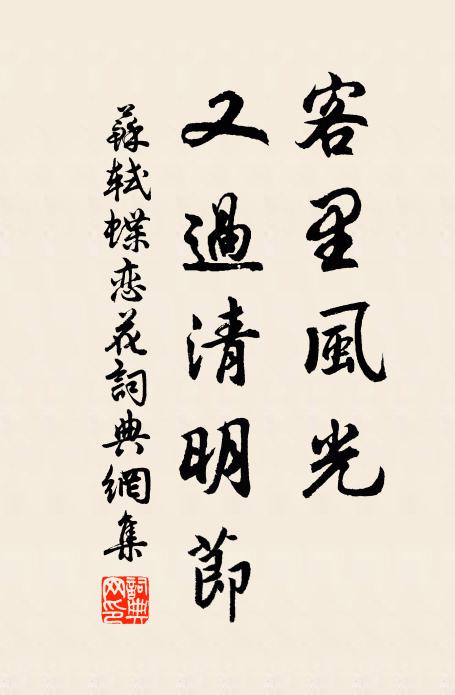 客里風光
又過清明節
蘇軾蝶恋花詞典網集
詞典网印